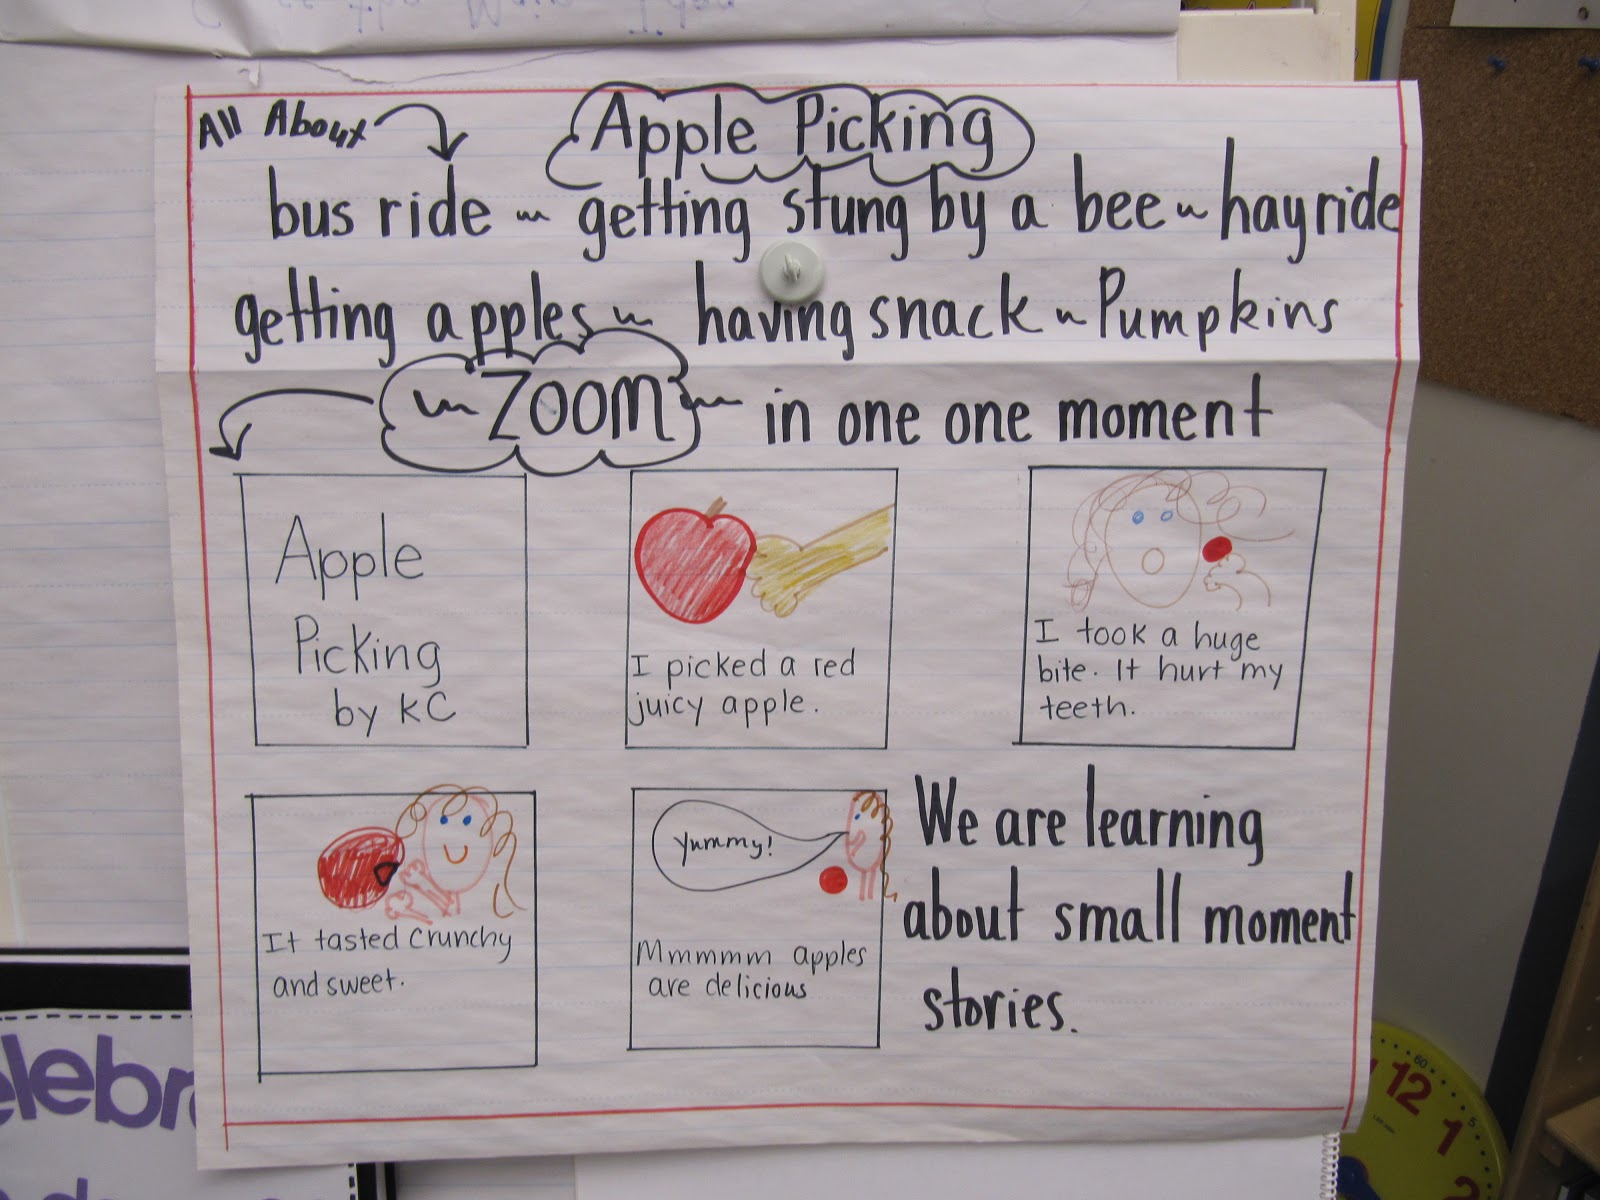 All About
Apple Picking
bus ride ~ getting stung by a bee ~ hayride
getting apples ~ having snack ~ Pumpkins
~ ZOOM ~ in one one moment
Apple
Picking
by KC
I picked a red
juicy apple.
I took a huge
bite. It hurt my
teeth.
It tasted crunchy
and sweet.
Yummy!
Mmmmmm apples
are delicious
We are learning
about small moment
stories.
elebr
60
12
5
1
2